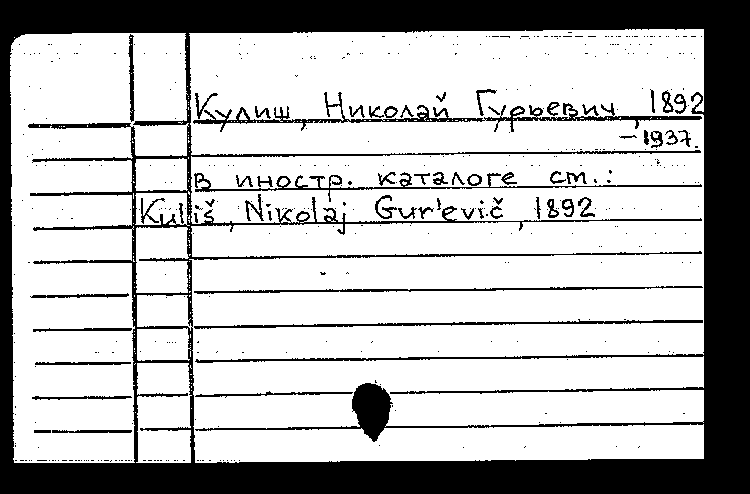 Кулиш, Николай Гурьевич, 1892
– 1937.
в иностр. каталоге см.:
Kuliš, Nikolaj Gur'evič, 1892